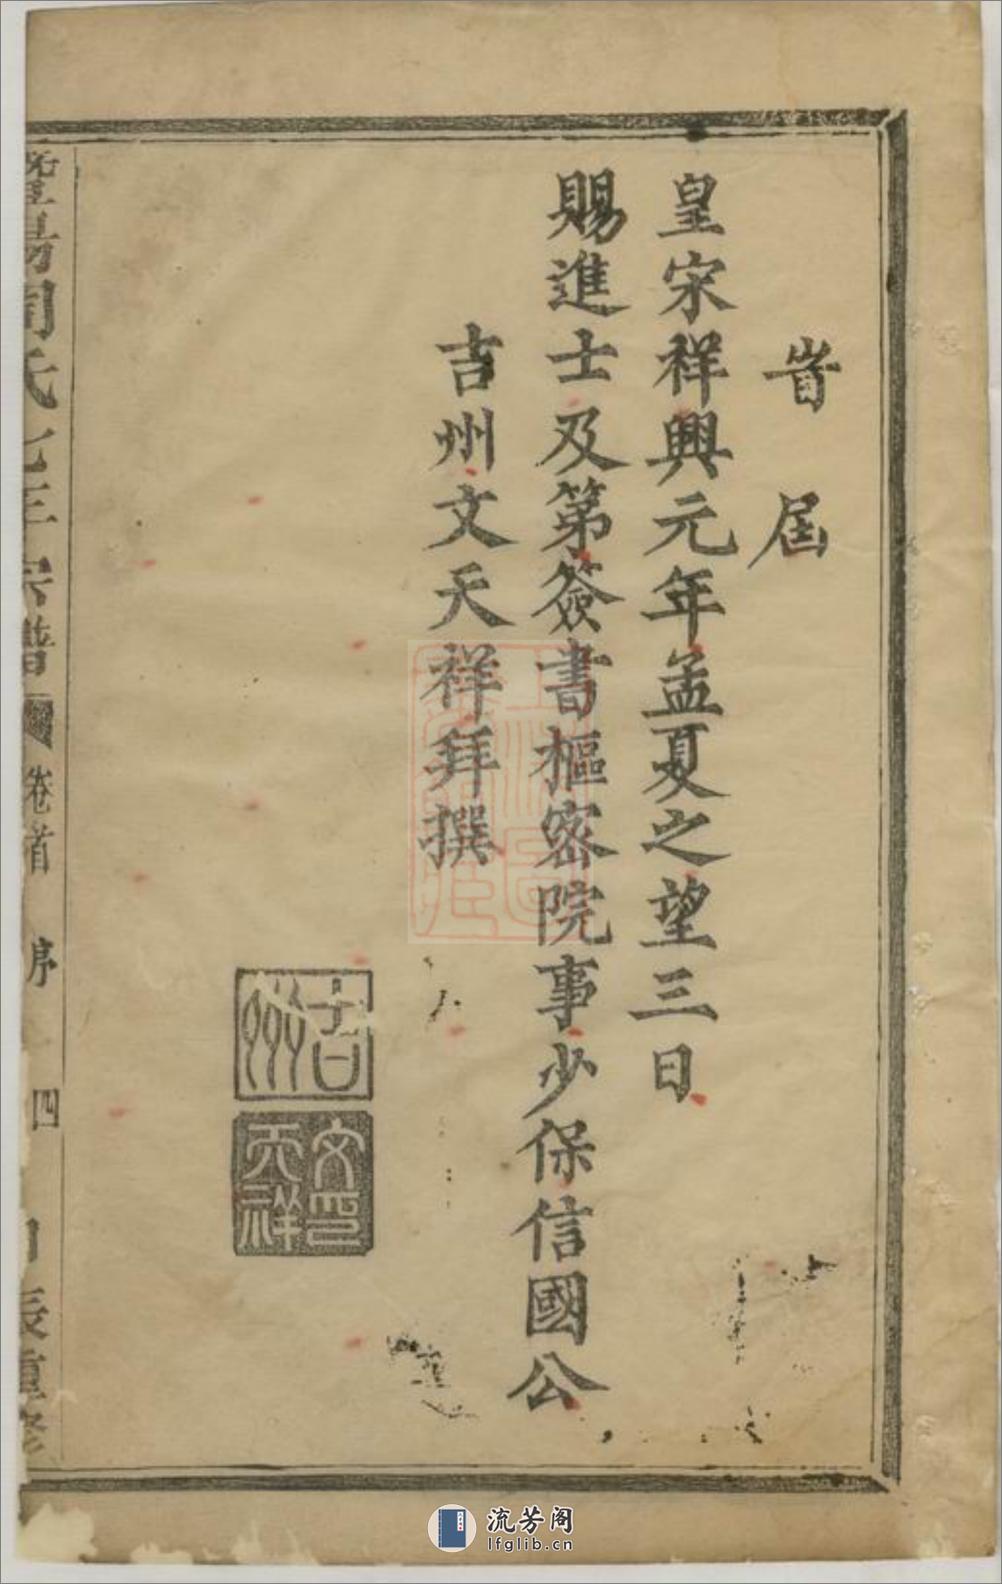 旹 屆
皇宋祥興元年孟夏之望三日
賜進士及第簽書樞密院事少保信國公
吉州文天祥拜撰
吉州
文天祥印
陽周氏七年宗譜 卷首 序 四 辰重修
流芳阁
lfglib.cn